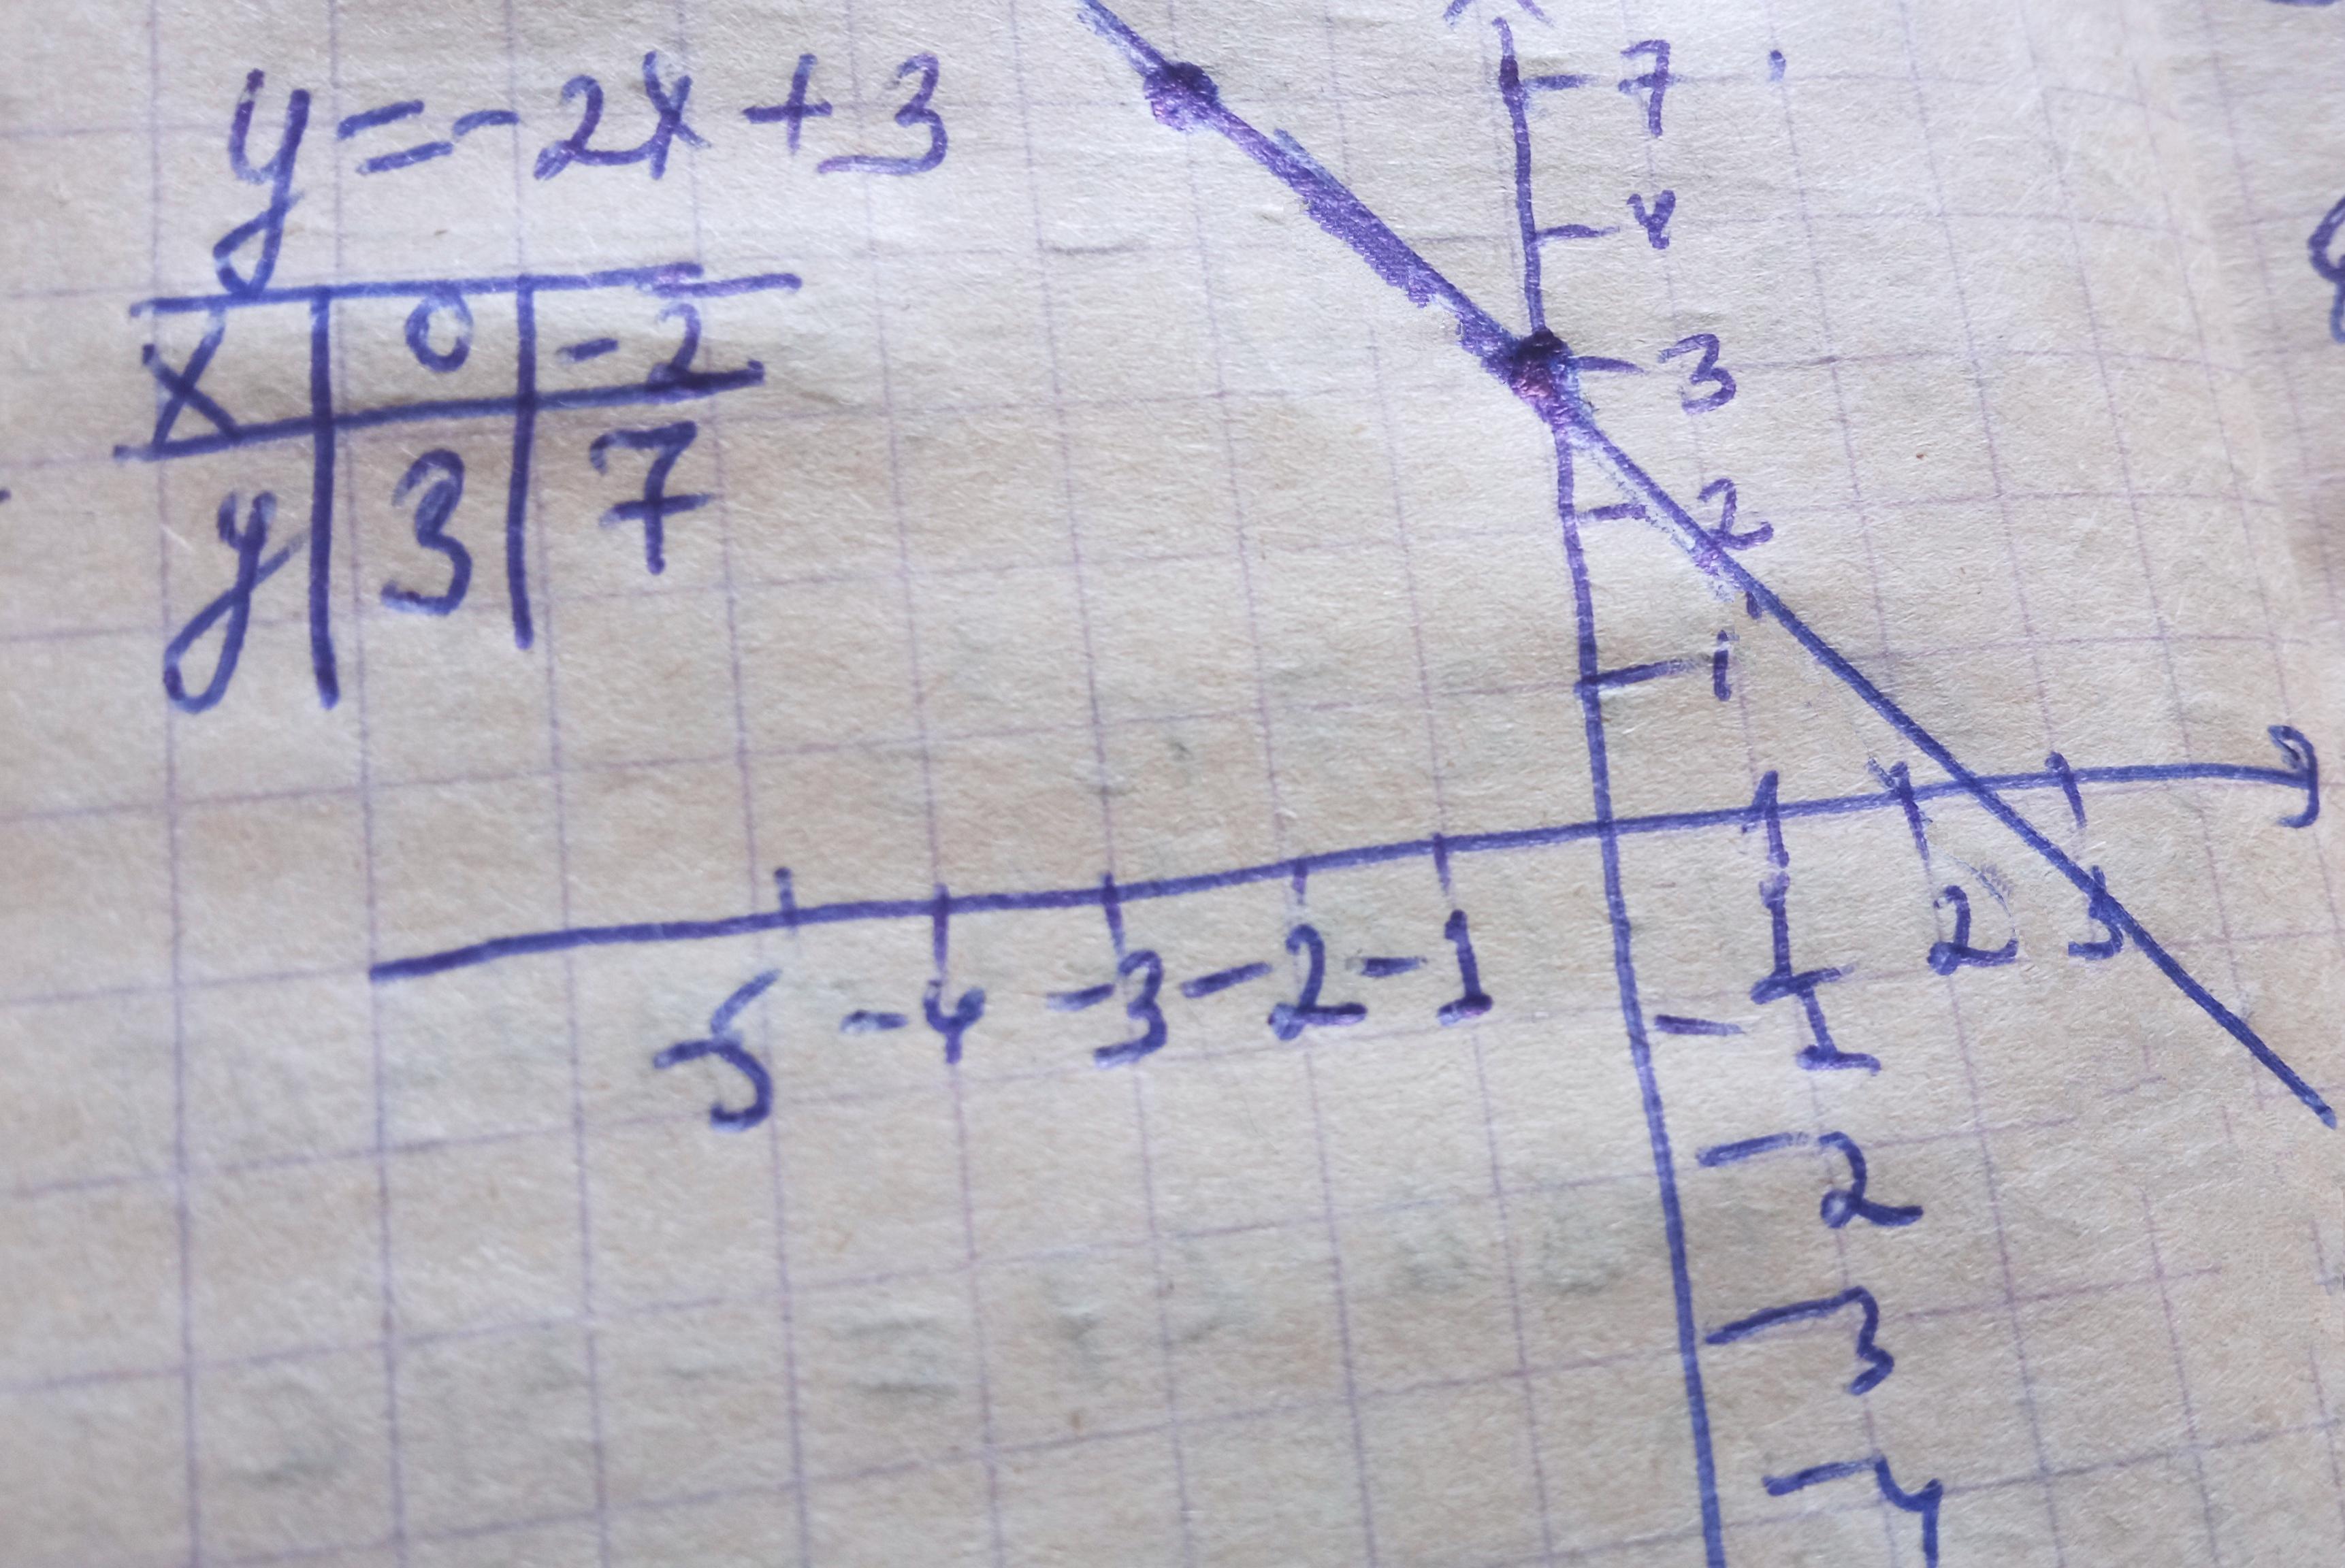 y = -2x + 3
x | 0 | -2
y | 3 | 7
7
4
3
2
1
-5 -4 -3 -2 -1 1 2 3
-1
-2
-3
-4